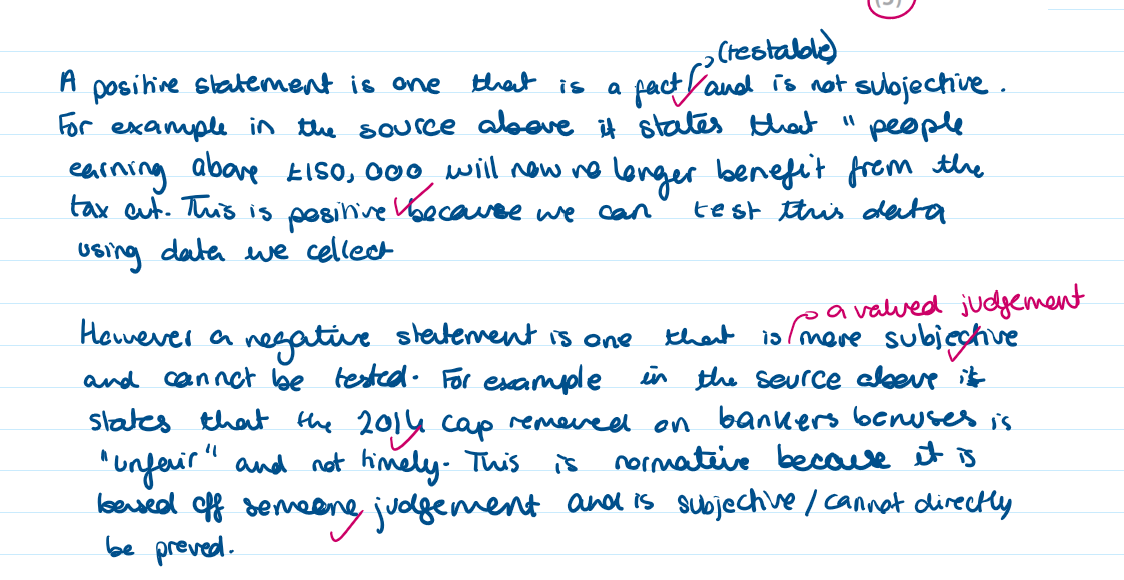 (5)
(testable)
A positive statement is one that is a fact and is not subjective.
For example in the source above it states that " people
earning above £150,000 will now no longer benefit from the
tax cut. This is positive because we can test this data
using data we collect
a valued judgement
However a negative statement is one that is more subjective
and cannot be tested. For example in the source above it
states that the 2014 cap removed on bankers bonuses is
"unfair" and not timely. This is normative because it is
based off someone judgement and is subjective / cannot directly
be proved.